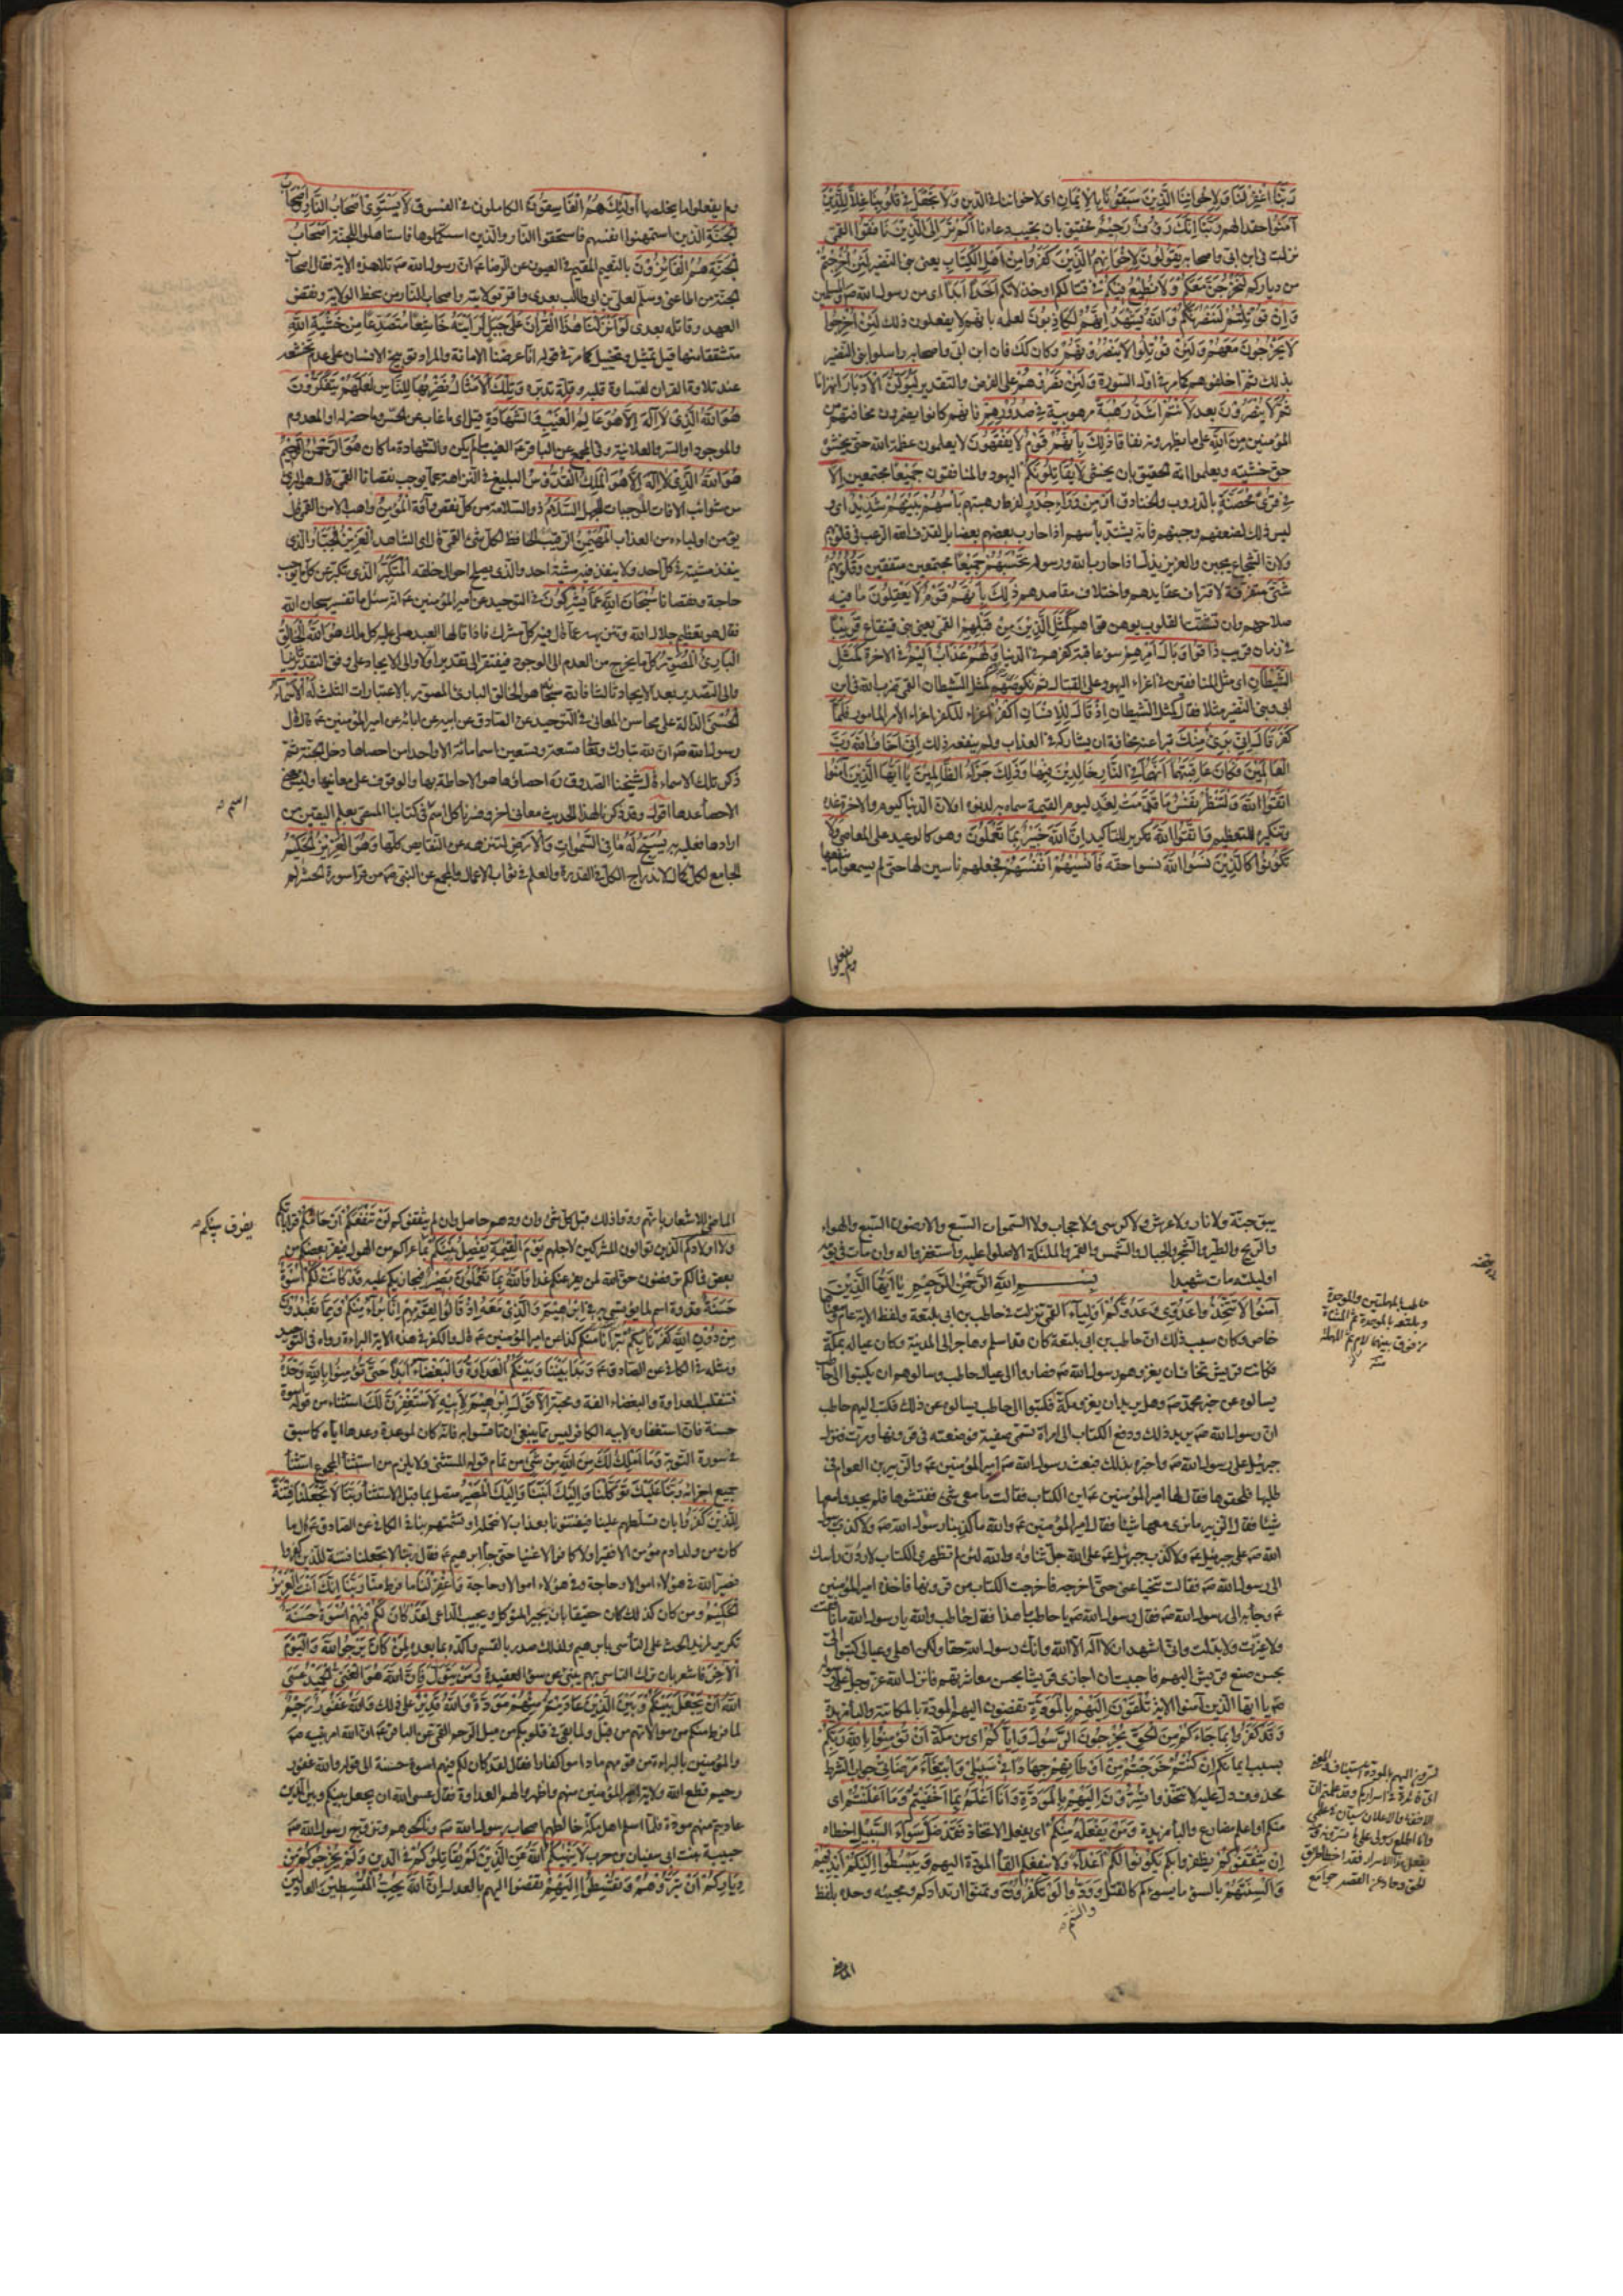 رَبَّنَا اغْفِرْ لَنَا وَلِاِخْوانِنَا الَّذِينَ سَبَقُونَا بِالْاِيْمَانِ اى لاخواننا فى الدين وَلَا تَجْعَلْ فِى قُلُوبِنَا غِلًّا لِلَّذِيْنَ
آمَنُوا حقدا لهم رَبَّنَا اِنَّكَ رَؤُفٌ رَحِيْمٌ فحقيق بان تجيب دعاءنا اَلَمْ تَرَ اِلَى الَّذِيْنَ نَافَقُوا القمى
نزلت فى ابن ابى واصحابه يَقُولُونَ لِاِخْوَانِهِمُ الَّذِيْنَ كَفَرُوا مِنْ اَهْلِ الْكِتَابِ يعنى بنى النضير لَئِنْ اُخْرِجْتُمْ
من دياركم لَنَخْرُجَنَّ مَعَكُمْ وَلَا نُطِيْعُ فِيْكُمْ فى قتالكم او خذلانكم اَحَدًا اَبَدًا اى من رسول الله ص والمسلمين
وَاِنْ قُوْتِلْتُمْ لَنَنْصُرَنَّكُمْ وَاللهُ يَشْهَدُ اِنَّهُمْ لَكَاذِبُونَ لعلمه بانهم لا يفعلون ذلك لَئِنْ اُخْرِجُوا
لَا يَخْرُجُونَ مَعَهُمْ وَلَئِنْ قُوْتِلُوا لَا يَنْصُرُوْنَهُمْ وكان كك فان ابن ابى واصحابه راسلوا بنى النضير
بذلك ثم اخلفوهم كما مر فى اول السورة وَلَئِنْ نَصَرُوهُمْ على الفرض والتقدير لَيُوَلُّنَّ الْاَدْبَارَ انهزاما
ثُمَّ لَا يُنْصَرُوْنَ بعد لَاَنْتُمْ اَشَدُّ رَهْبَةً مرهوبية فِى صُدُوْرِهِمْ فانهم كانوا يضمرون مخافتهم من
المؤمنين مِنَ اللهِ على ما يظهرونه نفاقا ذَلِكَ بِاَنَّهُمْ قَوْمٌ لَا يَفْقَهُونَ لا يعلمون عظمة الله حتى يخشوه
حق خشيته ويعلموا انه الحقيق بان يخشى لَا يُقَاتِلُونَكُمْ اليهود والمنافقون جَمِيْعًا مجتمعين اِلَّا
فِى قُرًى مُحَصَّنَةٍ بالدروب والخنادق اَوْ مِنْ وَرَاءِ جُدُرٍ لفرط رهبتهم بَأْسُهُمْ بَيْنَهُمْ شَدِيْدٌ اى و
ليس ذلك لضعفهم وجبنهم فانه يشتد بأسهم اذا حارب بعضهم بعضا بل لقذف الله الرعب فى قلوبهم
ولان الشجاع يجبن والعزيز يذل اذا حارب الله ورسوله تَحْسَبُهُمْ جَمِيْعًا مجتمعين متفقين وَقُلُوبُهُمْ
شَتَّى متفرقة لافتراق عقايدهم واختلاف مقاصدهم ذَلِكَ بِاَنَّهُمْ قَوْمٌ لَا يَعْقِلُونَ ما فيه
صلاحهم وان تشتت القلوب يوهن قواهم كَمَثَلِ الَّذِيْنَ مِنْ قَبْلِهِمْ القمى يعنى بنى قينقاع قَرِيْبًا
فى زمان قريب ذَاقُوا وَبَالَ اَمْرِهِمْ سوء عاقبة كفرهم فى الدنيا وَلَهُمْ عَذَابٌ اَلِيْمٌ فى الاخرة كَمَثَلِ
الشَّيْطَانِ اى مثل المنافقين فى اغراء اليهود على القتال ثم نكوصهم كمثل الشيطان القمى ضرب الله فى ابن
ابى وبنى النضير مثلا فقال كمثل الشيطان اِذْ قَالَ لِلْاِنْسَانِ اكْفُرْ اغراه للكفر اغراء الامر المامور فَلَمَّا
كَفَرَ قَالَ اِنِّى بَرِىءٌ مِنْكَ تبرا عنه مخافة ان يشاركه فى العذاب ولم ينفعه ذلك اِنِّى اَخَافُ اللهَ رَبَّ
الْعَالَمِيْنَ فَكَانَ عَاقِبَتَهُمَا اَنَّهُمَا فِى النَّارِ خَالِدَيْنِ فِيْهَا وَذَلِكَ جَزَاءُ الظَّالِمِيْنَ يَا اَيُّهَا الَّذِيْنَ آمَنُوا
اتَّقُوا اللهَ وَلْتَنْظُرْ نَفْسٌ مَا قَدَّمَتْ لِغَدٍ ليوم القيمة سماه به لدنوه او لان الدنيا كيوم والاخرة غده
وتنكيره للتعظيم وَاتَّقُوا اللهَ تكرير للتاكيد اِنَّ اللهَ خَبِيْرٌ بِمَا تَعْمَلُونَ وهو كالوعيد على المعاصى وَلَا
تَكُونُوا كَالَّذِيْنَ نَسُوا اللهَ نسوا حقه فَاَنْسَيهُمْ اَنْفُسَهُمْ فجعلهم ناسين لها حتى لم يسمعوا ما ينفعها
ولم يفعلوا
ولم يفعلوا ما يخلصها اُولَئِكَ هُمُ الْفَاسِقُونَ الكاملون فى الفسوق لَا يَسْتَوِى اَصْحَابُ النَّارِ وَاَصْحَابُ
الْجَنَّةِ الذين استمهنوا انفسهم فاستحقوا النار والذين استكملوها فاستاهلوا للجنة اَصْحَابُ
الْجَنَّةِ هُمُ الْفَائِزُوْنَ بالنعيم المقيم فى العيون عن الرضا ع ان رسول الله ص تلا هذه الاية فقال اصحاب
الجنة من اطاعنى وسلم لعلى بن ابى طالب بعدى واقر بولايته واصحاب النار من سخط الولاية ونقض
العهد وقاتله بعدى لَوْ اَنْزَلْنَا هَذَا الْقُرْآنَ عَلَى جَبَلٍ لَرَاَيْتَهُ خَاشِعًا مُتَصَدِّعًا مِنْ خَشْيَةِ اللهِ
متشققا منها قيل تمثيل وتخييل كما مر فى قوله انا عرضنا الامانة والمراد توبيخ الانسان على عدم تخشعه
عند تلاوة القران لقساوة قلبه وقلة تدبره وَتِلْكَ الْاَمْثَالُ نَضْرِبُهَا لِلنَّاسِ لَعَلَّهُمْ يَتَفَكَّرُوْنَ
هُوَ اللهُ الَّذِى لَا اِلَهَ اِلَّا هُوَ عَالِمُ الْغَيْبِ وَالشَّهَادَةِ قيل اى ما غاب عن الحس وما حضر له او المعدوم
والموجود او السر والعلانية وفى المجمع عن الباقر ع الغيب ما لم يكن والشهادة ما كان هُوَ الرَّحْمَنُ الرَّحِيْمُ
هُوَ اللهُ الَّذِى لَا اِلَهَ اِلَّا هُوَ الْمَلِكُ الْقُدُّوْسُ البليغ فى النزاهة عما يوجب نقصانا القمى قال هو البرىء
من شوائب الافات الموجبات للجهل السَّلَامُ ذو السلامة من كل نقص وآفة الْمُؤْمِنُ واهب الامن القمى قال
يؤمن اولياءه من العذاب الْمُهَيْمِنُ الرقيب الحافظ لكل شىء القمى اى الشاهد الْعَزِيْزُ الْجَبَّارُ الذى
ينفذ مشيته فى كل احد ولا ينفذ فيه مشية احد والذى يصلح احوال خلقه الْمُتَكَبِّرُ الذى تكبر عن كل ما يوجب
حاجة ونقصانا سُبْحَانَ اللهِ عَمَّا يُشْرِكُونَ فى التوحيد عن امير المؤمنين ع انه سئل ما تفسير سبحان الله
فقال هو تعظيم جلال الله وتنزيهه عما قال فيه كل مشرك فاذا قالها العبد صلى عليه كل ملك هُوَ اللهُ الْخَالِقُ
الْبَارِئُ الْمُصَوِّرُ كل ما يخرج من العدم الى الوجود فيفتقر الى تقدير اولا والى الايجاد على وفق التقدير ثانيا
والى التصوير بعد الايجاد ثالثا فالله سبحانه هو الخالق البارئ المصور بالاعتبارات الثلث لَهُ الْاَسْمَاءُ
الْحُسْنَى الدالة على محاسن المعانى فى التوحيد عن الصادق عن ابيه عن ابائه عن امير المؤمنين ع قال قال
رسول الله ص ان لله تبارك وتعالى تسعة وتسعين اسما مائة الا واحدا من احصاها دخل الجنة ثم
ذكر تلك الاسماء قال شيخنا الصدوق ره احصائها هو الاحاطة بها والوقوف على معانيها وليس معنى
الاحصاء عدها اقول وقد ذكرنا لهذا الحديث معانى اخر وفسرنا كل اسم فى كتابنا المسمى بعلم اليقين من
ارادها فعليه به يُسَبِّحُ لَهُ مَا فِى السَّمَوَاتِ وَالْاَرْضِ لتنزهه عن النقايص كلها وَهُوَ الْعَزِيْزُ الْحَكِيْمُ
الجامع لكل كمال لاندراج الكل فى القدرة والعلم فى ثواب الاعمال والمجمع عن النبى ص من قرا سورة الحشر لم
اسم
يبق جنة ولا نار ولا عرش ولا كرسى ولا حجاب ولا السموات السبع والارضون السبع والهواء
والريح والطير والشجر والجبال والشمس والقمر والملئكة الا صلوا عليه واستغفروا له وان مات فى يومه
او ليلته مات شهيدا بِسْمِ اللهِ الرَّحْمَنِ الرَّحِيْمِ يَا اَيُّهَا الَّذِيْنَ
آمَنُوا لَا تَتَّخِذُوا عَدُوِّى وَعَدُوَّكُمْ اَوْلِيَاءَ القمى نزلت فى حاطب بن ابى بلتعة ولفظ الاية عام ومعناها
خاص وكان سبب ذلك ان حاطب بن ابى بلتعة كان قد اسلم وهاجر الى المدينة وكان عياله بمكة
فكانت قريش تخاف ان يغزوهم رسول الله ص فصاروا الى عيال حاطب وسالوهم ان يكتبوا الى حاطب
يسالوه عن خبر محمد ص وهل يريد ان يغزو مكة فكتبوا الى حاطب يسالوه عن ذلك فكتب اليهم حاطب
ان رسول الله ص يريد ذلك ودفع الكتاب الى امراة تسمى صفية فوضعته فى قرونها ومرت فنزل
جبرئيل على رسول الله ص واخبره بذلك فبعث رسول الله ص امير المؤمنين ع والزبير بن العوام فى
طلبها فلحقوها فقال لها امير المؤمنين ع اين الكتاب فقالت ما معى شىء ففتشوها فلم يجدوا معها
شيئا فقال الزبير ما نرى معها شيئا فقال امير المؤمنين ع والله ما كذبنا رسول الله ص ولا كذب رسول
الله ص على جبرئيل ع ولا كذب جبرئيل ع على الله جل ثناؤه والله لئن لم تظهرى الكتاب لاردن راسك
الى رسول الله ص فقالت تنحيا عنى حتى اخرجه فاخرجت الكتاب من قرونها فاخذه امير المؤمنين
ع وجاء به الى رسول الله ص فقال رسول الله ص يا حاطب ما هذا فقال حاطب والله يا رسول الله ما نافقت
ولا غيرت ولا بدلت وانى اشهد ان لا اله الا الله وانك رسول الله حقا ولكن اهلى وعيالى كتبوا الى
بحسن صنع قريش اليهم فاحببت ان اجازى قريشا بحسن معاشرتهم فانزل الله عز وجل على رسوله
ص يا ايها الذين آمنوا الاية تُلْقُوْنَ اِلَيْهِمْ بِالْمَوَدَّةِ تفضون اليهم المودة بالمكاتبة والباء مزيدة
وَقَدْ كَفَرُوا بِمَا جَاءَكُمْ مِنَ الْحَقِّ يُخْرِجُونَ الرَّسُولَ وَاِيَّاكُمْ اى من مكة اَنْ تُؤْمِنُوا بِاللهِ رَبِّكُمْ
بسبب ايمانكم اِنْ كُنْتُمْ خَرَجْتُمْ من اوطانهم جِهَادًا فِى سَبِيْلِى وَابْتِغَاءَ مَرْضَاتِى جواب الشرط
محذوف دل عليه لا تتخذوا تُسِرُّوْنَ اِلَيْهِمْ بِالْمَوَدَّةِ وَاَنَا اَعْلَمُ بِمَا اَخْفَيْتُمْ وَمَا اَعْلَنْتُمْ اى
منكم او اعلم مضارع والباء مزيدة وَمَنْ يَفْعَلْهُ مِنْكُمْ اى يفعل الاتخاذ فَقَدْ ضَلَّ سَوَاءَ السَّبِيْلِ اخطاه
اِنْ يَثْقَفُوْكُمْ يظفروا بكم يَكُوْنُوا لَكُمْ اَعْدَاءً ولا ينفعكم القاء المودة اليهم وَيَبْسُطُوا اِلَيْكُمْ اَيْدِيَهُمْ
وَاَلْسِنَتَهُمْ بِالسُّوْءِ ما يسوءكم كالقتل وَوَدُّوا لَوْ تَكْفُرُوْنَ وتمنوا ارتدادكم ومجيئه وحده بلفظ
والشتم
الماضى
حاطب بالمهملتين والموحدة
وبلتعة بالموحدة ثم المثناة
من فوق بينهما لام ثم المهملة
تسرون اليهم بالمودة استيناف
الاخفاء والاعلان سيان فى علمى
الحق وجاد عن القصد جوامع
الماضى للاشعار بانهم ودوا ذلك قبل كل شىء وان ودهم حاصل وان لم يثقفوكم لَنْ تَنْفَعَكُمْ اَرْحَامُكُمْ قراباتكم
وَلَا اَوْلَادُكُمْ الذين توالون المشركين لاجلهم يَوْمَ الْقِيمَةِ يَفْصِلُ بَيْنَكُمْ بما عراكم من الهول فيفر بعضكم من
بعض فمالكم ترفضون حق الله لمن يفر عنكم غدا وَاللهُ بِمَا تَعْمَلُوْنَ بَصِيْرٌ فيجازيكم عليه قَدْ كَانَتْ لَكُمْ اُسْوَةٌ
حَسَنَةٌ قدوة اسم لما يؤتسى به فِى اِبْرَهِيْمَ وَالَّذِيْنَ مَعَهُ اِذْ قَالُوا لِقَوْمِهِمْ اِنَّا بُرَآءُ مِنْكُمْ وَمِمَّا تَعْبُدُوْنَ
مِنْ دُوْنِ اللهِ كَفَرْنَا بِكُمْ تبرأنا منكم كذا عن امير المؤمنين ع قال والكفر فى هذه الاية البراءة رواه فى التوحيد
ومثله فى الكافى عن الصادق ع وَبَدَا بَيْنَنَا وَبَيْنَكُمُ الْعَدَاوَةُ وَالْبَغْضَاءُ اَبَدًا حَتَّى تُؤْمِنُوا بِاللهِ وَحْدَهُ
فتنقلب العداوة والبغضاء الفة ومحبة اِلَّا قَوْلَ اِبْرَهِيْمَ لِاَبِيْهِ لَاَسْتَغْفِرَنَّ لَكَ استثناء من قوله اسوة
حسنة فان استغفاره لابيه الكافر ليس مما ينبغى ان تاتسوا به فانه كان لموعدة وعدها اياه كما سبق
فى سورة التوبة وَمَا اَمْلِكُ لَكَ مِنَ اللهِ مِنْ شَىْءٍ من تمام قوله المستثنى ولا يلزم من استثناء المجموع استثناء
جميع اجزائه رَبَّنَا عَلَيْكَ تَوَكَّلْنَا وَاِلَيْكَ اَنَبْنَا وَاِلَيْكَ الْمَصِيْرُ متصل بما قبل الاستثناء رَبَّنَا لَا تَجْعَلْنَا فِتْنَةً
لِلَّذِيْنَ كَفَرُوا بان تسلطهم علينا فيفتنونا بعذاب لا نتحمله او تشمتهم بنا فى الكافى عن الصادق ع قال ما
كان من ولد ادم مؤمن الا فقيرا ولا كافر الا غنيا حتى جاء ابرهيم ع فقال ربنا لا تجعلنا فتنة للذين كفروا
فصير الله فى هؤلاء اموالا وحاجة وفى هؤلاء اموالا وحاجة وَاغْفِرْ لَنَا ما فرط منا رَبَّنَا اِنَّكَ اَنْتَ الْعَزِيْزُ
الْحَكِيْمُ ومن كان كذلك كان حقيقا بان يجير المتوكل ويجيب الداعى لَقَدْ كَانَ لَكُمْ فِيْهِمْ اُسْوَةٌ حَسَنَةٌ
تكرير لمزيد الحث على التأسى بابرهيم ولذلك صدر بالقسم واكد بما بعده لِمَنْ كَانَ يَرْجُوا اللهَ وَالْيَوْمَ
الْآخِرَ فاشعر بان ترك التاسى بهم ينبئ عن سوء العقيدة وَمَنْ يَتَوَلَّ فَاِنَّ اللهَ هُوَ الْغَنِىُّ الْحَمِيْدُ عَسَى
اللهُ اَنْ يَجْعَلَ بَيْنَكُمْ وَبَيْنَ الَّذِيْنَ عَادَيْتُمْ مِنْهُمْ مَوَدَّةً وَاللهُ قَدِيْرٌ على ذلك وَاللهُ غَفُوْرٌ رَحِيْمٌ
لما فرط منكم من موالاتهم من قبل ولما بقى فى قلوبكم من ميل الرحم القمى عن الباقر ع ان الله امر نبيه ص
والمؤمنين بالبراءة من قومهم ما داموا كفارا فقال لقد كان لكم فيهم اسوة حسنة الى قوله والله غفور
رحيم قطع الله ولاية المؤمنين منهم واظهروا لهم العداوة فقال عسى الله ان يجعل بينكم وبين الذين
عاديتم منهم مودة فلما اسلم اهل مكة خالطهم اصحاب رسول الله ص وناكحوهم وتزوج رسول الله ص
حبيبة بنت ابى سفيان بن حرب لَا يَنْهَيكُمُ اللهُ عَنِ الَّذِيْنَ لَمْ يُقَاتِلُوْكُمْ فِى الدِّيْنِ وَلَمْ يُخْرِجُوْكُمْ مِنْ
دِيَارِكُمْ اَنْ تَبَرُّوْهُمْ وَتُقْسِطُوْا اِلَيْهِمْ تقضوا اليهم بالعدل اِنَّ اللهَ يُحِبُّ الْمُقْسِطِيْنَ العادلين
يفرق بينكم